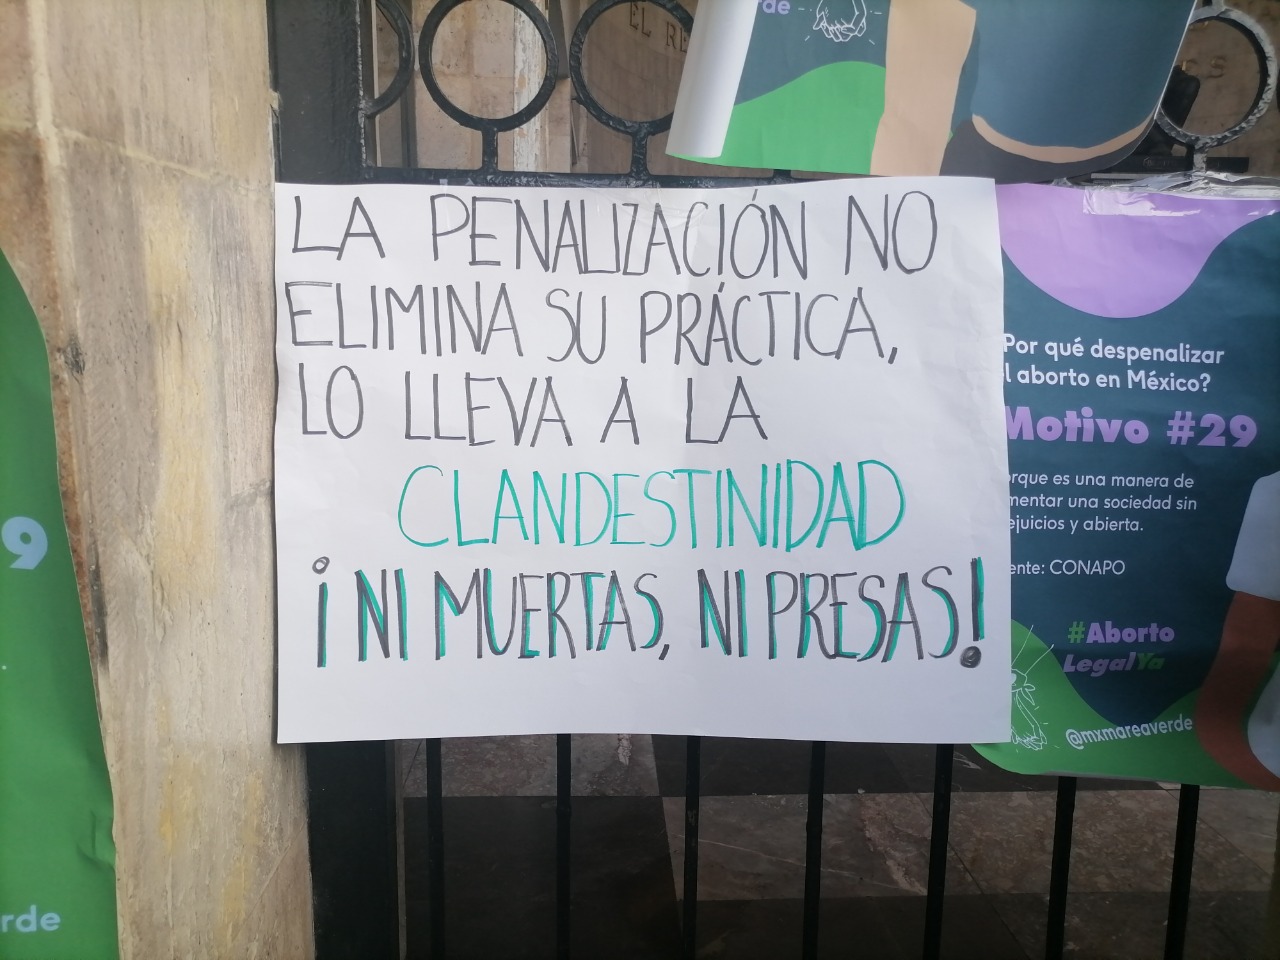 LA PENALIZACIÓN NO
ELIMINA SU PRÁCTICA,
LO LLEVA A LA
CLANDESTINIDAD
¡NI MUERTAS, NI PRESAS!
Por qué despenalizar
l aborto en México?
Motivo #29
rque es una manera de
mentar una sociedad sin
ejuicios y abierta.
ente: CONAPO
#Aborto
LegalYa
@mxmareaverde
rde
9
rde
EL RE